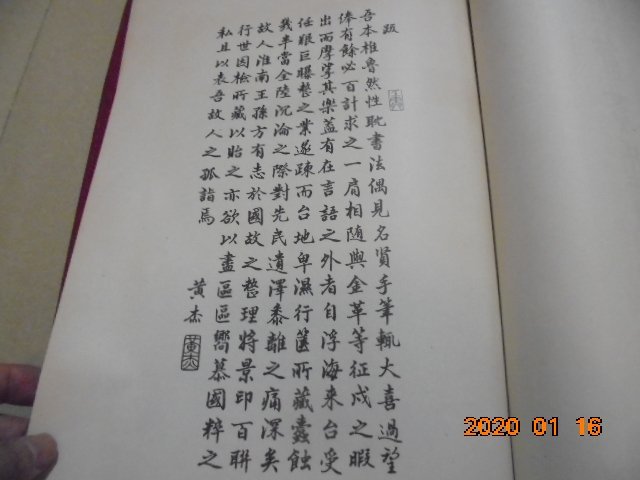 跋
吾本椎魯然性耽書法偶見名賢手筆輒大喜過望
俸有餘必百計求之一肩相隨與金革等征戍之暇
出而摩挲其樂蓋有在言語之外者自浮海來台受
任艱巨曝整之業遂疎而台地卑濕行篋所藏蠹蝕
幾半當全陸沉淪之際對先民遺澤黍離之痛深矣
故人淮南王孫方有志於國故之整理將景印百聯
行世因檢所藏以貽之亦欲以盡區區嚮慕國粹之
私且以表吾故人之孤詣焉
黃杰
2020 01 16